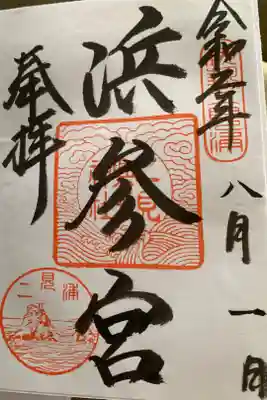 令和元年
八月一日
浜参宮
奉拝
二見浦